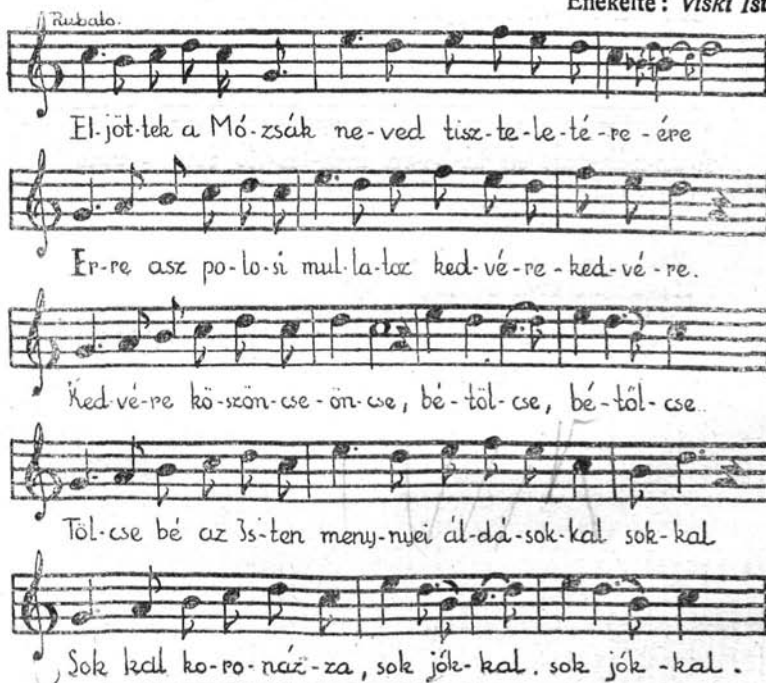 Énekelte: Viski
Rubato.
El-jöt-tek a Mó-zsák ne-ved tisz-te-le-té-re-ére
Er-re asz po-lo-si mul-la-toz ked-vé-re-ked-vé-re.
Ked-vé-re kö-szön-cse-ön-cse, bé-töl-cse, bé-töl-cse
Töl-cse bé az Is-ten meny-nyei ál-dá-sok-kal sok-kal
Sok kal ko-ro-náz-za, sok jók-kal. sok jók-kal.